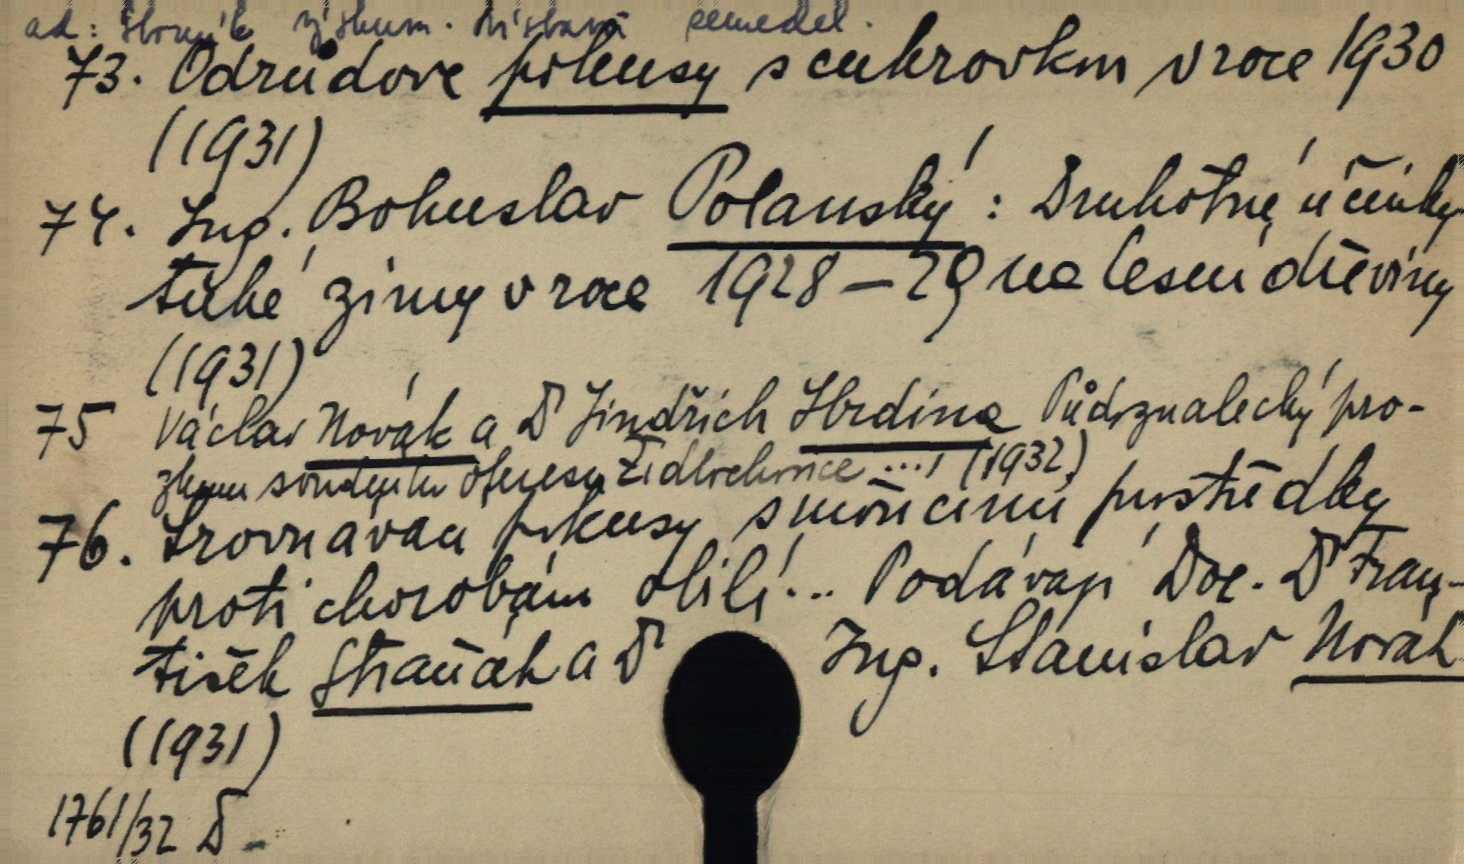 ad: Sborník výzkum. ústavů zemeděl.
73. Odrůdove pokusy s cukrovkou v roce 1930
(1931)
74. Ing. Bohuslav Polanský: Druhotné účinky
tuhé zimy v roce 1928–29 na lesní dřeviny
(1931)
75 Václav Novák a Dr Jindřich Hrdina Půdoznalecký prů-
zkum soudního okresu Židlochovice ... (1932)
76. Srovnávací pokusy s mořícími prostředky
proti chorobám obilí... Podávají Doc. Dr Fran-
tišek Straňák a Dr Ing. Stanislav Novák
(1931)
1761/32 D